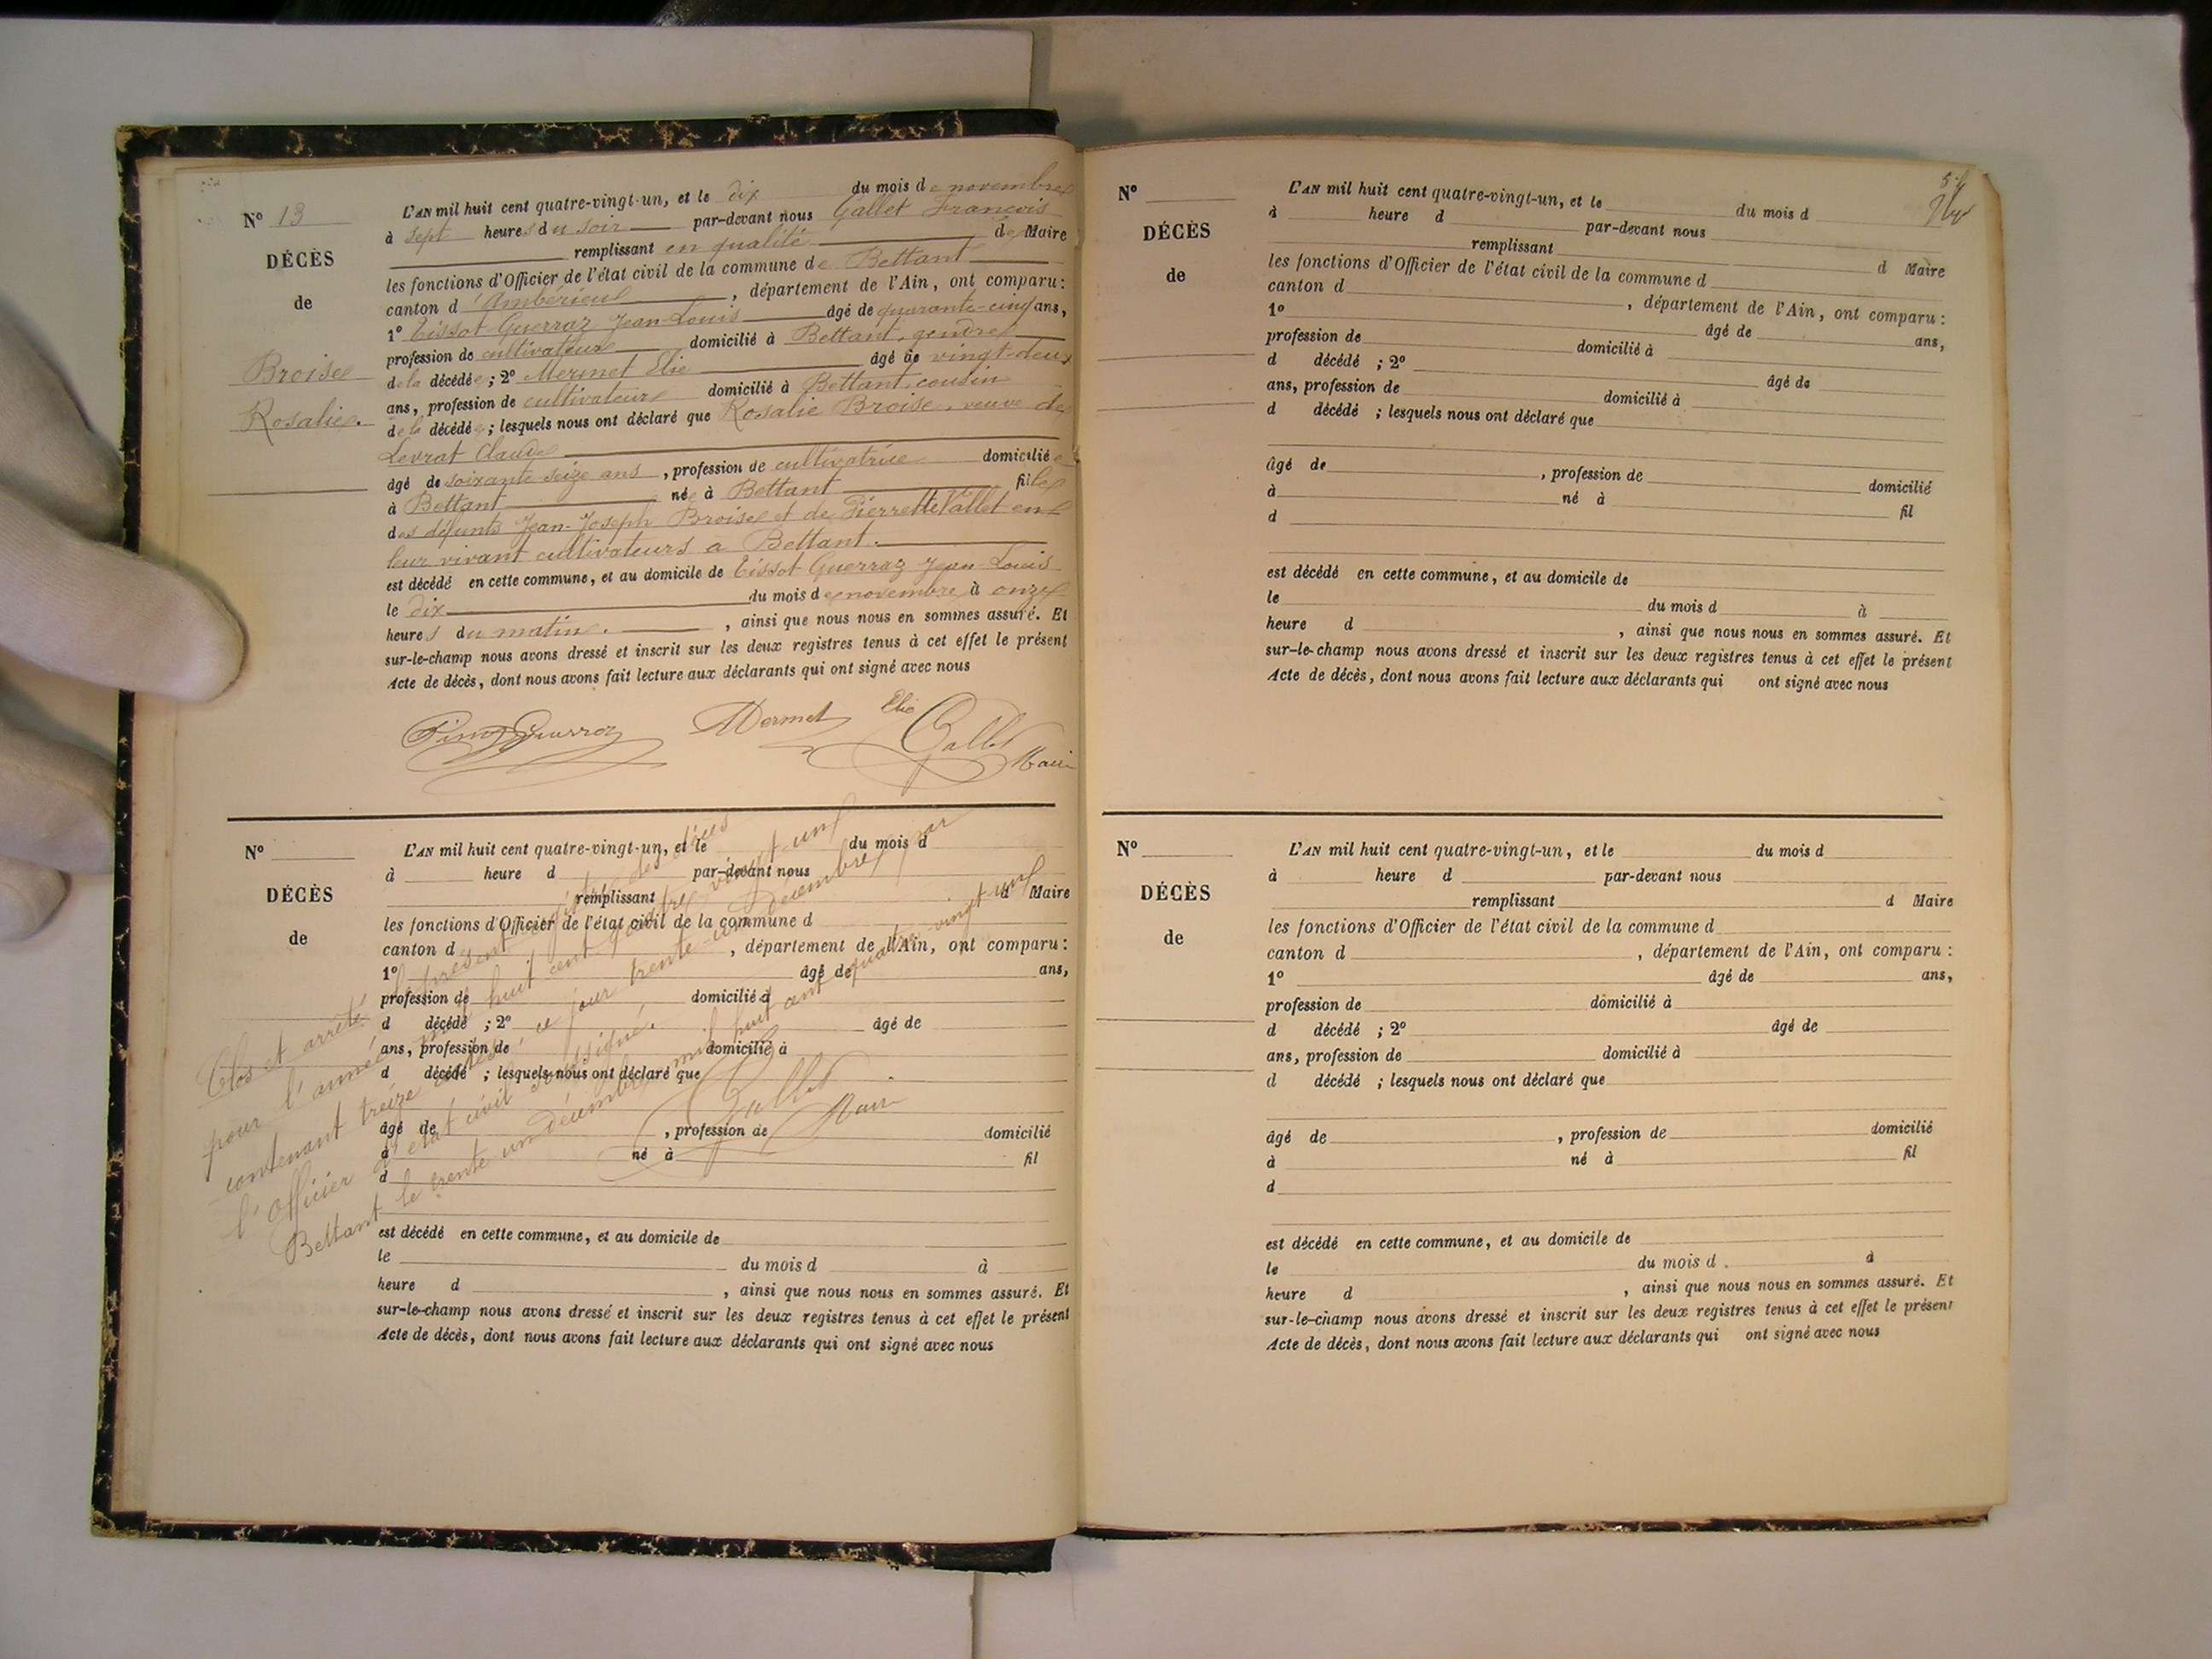 N° 13
DÉCÈS
de
Broise
Rosalie.
L'AN mil huit cent quatre-vingt-un, et le dix du mois de novembre
à sept heures du soir par-devant nous Gallet François
remplissant en qualité de Maire
les fonctions d'Officier de l'état civil de la commune de Bettant
canton d'Ambérieu, département de l'Ain, ont comparu:
1° Tissot-Guerraz Jean-Louis âgé de quarante-cinq ans,
profession de cultivateur domicilié à Bettant, gendre
de la décédée; 2° Mermet Elie âgé de vingt-deux
ans, profession de cultivateur domicilié à Bettant, cousin
de la décédée; lesquels nous ont déclaré que Rosalie Broise, veuve de
Levrat Claude
âgé de soixante seize ans, profession de cultivatrice domiciliée
à Bettant né à Bettant fille
des défunts Jean-Joseph Broise et de Pierrette Vallet en
leur vivant cultivateurs à Bettant.
est décédé en cette commune, et au domicile de Tissot Guerraz Jean-Louis
le dix du mois de novembre à onze
heures du matin., ainsi que nous nous en sommes assuré. Et
sur-le-champ nous avons dressé et inscrit sur les deux registres tenus à cet effet le présent
Acte de décès, dont nous avons fait lecture aux déclarants qui ont signé avec nous
Guerraz Mermet Elie Gallet
Maire
N°
DÉCÈS
de
L'AN mil huit cent quatre-vingt-un, et le du mois d
à heure d par-devant nous
remplissant d Maire
les fonctions d'Officier de l'état civil de la commune d
canton d , département de l'Ain, ont comparu:
1° âgé de ans,
profession de domicilié à
d décédé ; 2° âgé de
ans, profession de domicilié à
d décédé ; lesquels nous ont déclaré que
âgé de , profession de domicilié
à né à fil
d
est décédé en cette commune, et au domicile de
le du mois d à
heure d , ainsi que nous nous en sommes assuré. Et
sur-le-champ nous avons dressé et inscrit sur les deux registres tenus à cet effet le présent
Acte de décès, dont nous avons fait lecture aux déclarants qui ont signé avec nous
Clos et arrêté le présent registre des décès
pour l'année mil huit cent quatre vingt un
contenant treize actes, ce jour trente-un Décembre par
l'Officier d'état civil soussigné.
Bettant le trente-un décembre mil huit cent quatre-vingt-un
Gallet
Maire
N°
DÉCÈS
de
L'AN mil huit cent quatre-vingt-un, et le du mois d
à heure d par-devant nous
remplissant d Maire
les fonctions d'Officier de l'état civil de la commune d
canton d , département de l'Ain, ont comparu:
1° âgé de ans,
profession de domicilié à
d décédé ; 2° âgé de
ans, profession de domicilié à
d décédé ; lesquels nous ont déclaré que
âgé de , profession de domicilié
à né à fil
d
est décédé en cette commune, et au domicile de
le du mois d à
heure d , ainsi que nous nous en sommes assuré. Et
sur-le-champ nous avons dressé et inscrit sur les deux registres tenus à cet effet le présent
Acte de décès, dont nous avons fait lecture aux déclarants qui ont signé avec nous
N°
DÉCÈS
de
L'AN mil huit cent quatre-vingt-un, et le du mois d
à heure d par-devant nous
remplissant d Maire
les fonctions d'Officier de l'état civil de la commune d
canton d , département de l'Ain, ont comparu:
1° âgé de ans,
profession de domicilié à
d décédé ; 2° âgé de
ans, profession de domicilié à
d décédé ; lesquels nous ont déclaré que
âgé de , profession de domicilié
à né à fil
d
est décédé en cette commune, et au domicile de
le du mois d à
heure d , ainsi que nous nous en sommes assuré. Et
sur-le-champ nous avons dressé et inscrit sur les deux registres tenus à cet effet le présent
Acte de décès, dont nous avons fait lecture aux déclarants qui ont signé avec nous